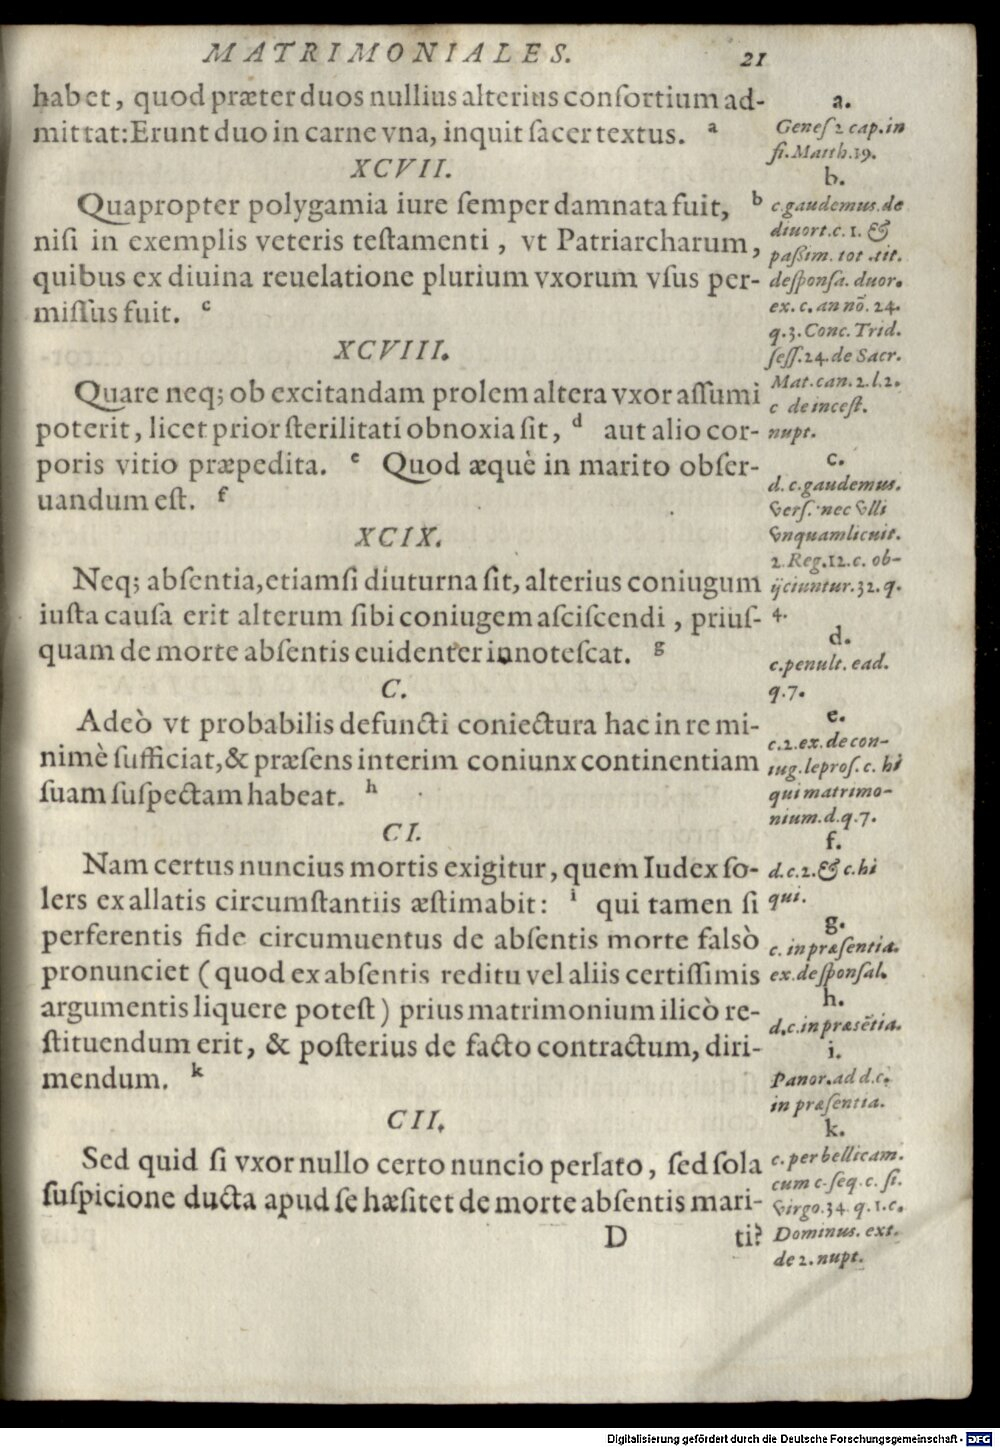 MATRIMONIALES. 21
habet, quod præter duos nullius alterius conſortium ad-
mittat: Erunt duo in carne vna, inquit ſacer textus. a
XCVII.
Quapropter polygamia iure ſemper damnata fuit, b
niſi in exemplis veteris teſtamenti, vt Patriarcharum,
quibus ex diuina reuelatione plurium vxorum vſus per-
miſſus fuit. c
XCVIII.
Quare neq; ob excitandam prolem altera vxor aſſumi
poterit, licet prior ſterilitati obnoxia ſit, d aut alio cor-
poris vitio præpedita. e Quod æquè in marito obſer-
uandum eſt. f
XCIX.
Neq; abſentia, etiamſi diuturna ſit, alterius coniugum
iuſta cauſa erit alterum ſibi coniugem aſciſcendi, priuſ-
quam de morte abſentis euidenter innoteſcat. g
C.
Adeò vt probabilis defuncti coniectura hac in re mi-
nimè ſufficiat, & præſens interim coniunx continentiam
ſuam ſuſpectam habeat. h
CI.
Nam certus nuncius mortis exigitur, quem Iudex ſo-
lers ex allatis circumſtantiis æſtimabit: i qui tamen ſi
perferentis fide circumuentus de abſentis morte falsò
pronunciet (quod ex abſentis reditu vel aliis certiſſimis
argumentis liquere poteſt) prius matrimonium ilicò re-
ſtituendum erit, & poſterius de facto contractum, diri-
mendum. k
CII.
Sed quid ſi vxor nullo certo nuncio perlato, ſed ſola
ſuſpicione ducta apud ſe hæſitet de morte abſentis mari-
D ti?
a.
Geneſ 2 cap. in
fi. Matth. 19.
b.
c. gaudemus. de
diuort. c. 1. &
paßim. tot. tit.
de ſponſa. duor.
ex. c. an nõ. 24.
q. 3. Conc. Trid.
ſeſſ. 24. de Sacr.
Mat. can. 2. l. 2.
c de inceſt.
nupt.
c.
d. c. gaudemus.
verſ. nec vlli
vnquam licuit.
2. Reg. 12. c. ob-
ijciuntur. 32. q.
4.
d.
c. penult. ead.
q. 7.
e.
c. 2. ex. de con-
iug. leproſ. c. hi
qui matrimo-
nium. d. q. 7.
f.
d. c. 2. & c. hi
qui.
g.
c. in præſentia.
ex. de ſponſal.
h.
d. c. in præsẽtia.
i.
Panor. ad d. c.
in præſentia.
k.
c. per bellicam.
cum c. ſeq. c. ſi.
virgo. 34 q. 1. c.
Dominus. ext.
de 2. nupt.
Digitalisierung gefördert durch die Deutsche Forschungsgemeinschaft - DFG